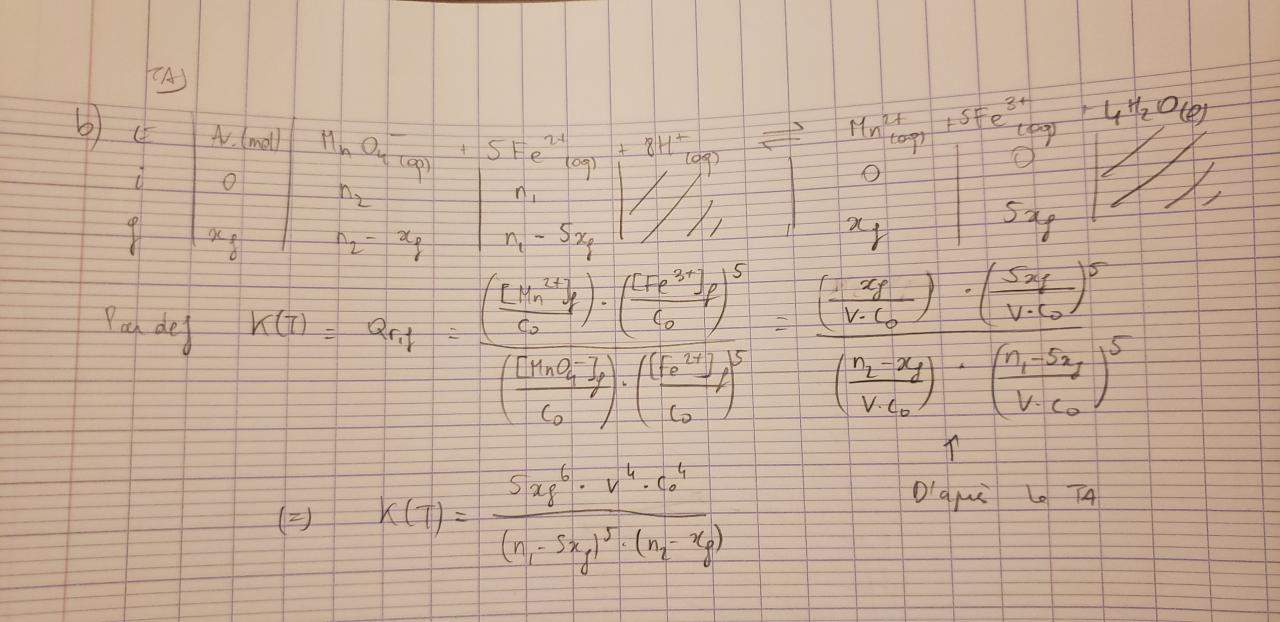 TA)
b) E Av. (mol) MnO₄⁻(aq) + 5Fe²⁺(aq) + 8H⁺(aq) ⇌ Mn²⁺(aq) + 5Fe³⁺(aq) + 4H₂O(l)
i 0 n₂ n₁ 0 0
f xf n₂ - xf n₁ - 5xf xf 5xf
Par def K(T) = Qr,f = (([Mn²⁺]f / C₀) · ([Fe³⁺]f / C₀)⁵) / (([MnO₄⁻]f / C₀) · ([Fe²⁺]f / C₀)⁵) = ((xf / V·C₀) · (5xf / V·C₀)⁵) / ((n₂ - xf / V·C₀) · (n₁ - 5xf / V·C₀)⁵)
↑
D'après le TA
(=) K(T) = (5xf⁶ · V⁴ · C₀⁴) / ((n₁ - 5xf)⁵ · (n₂ - xf))